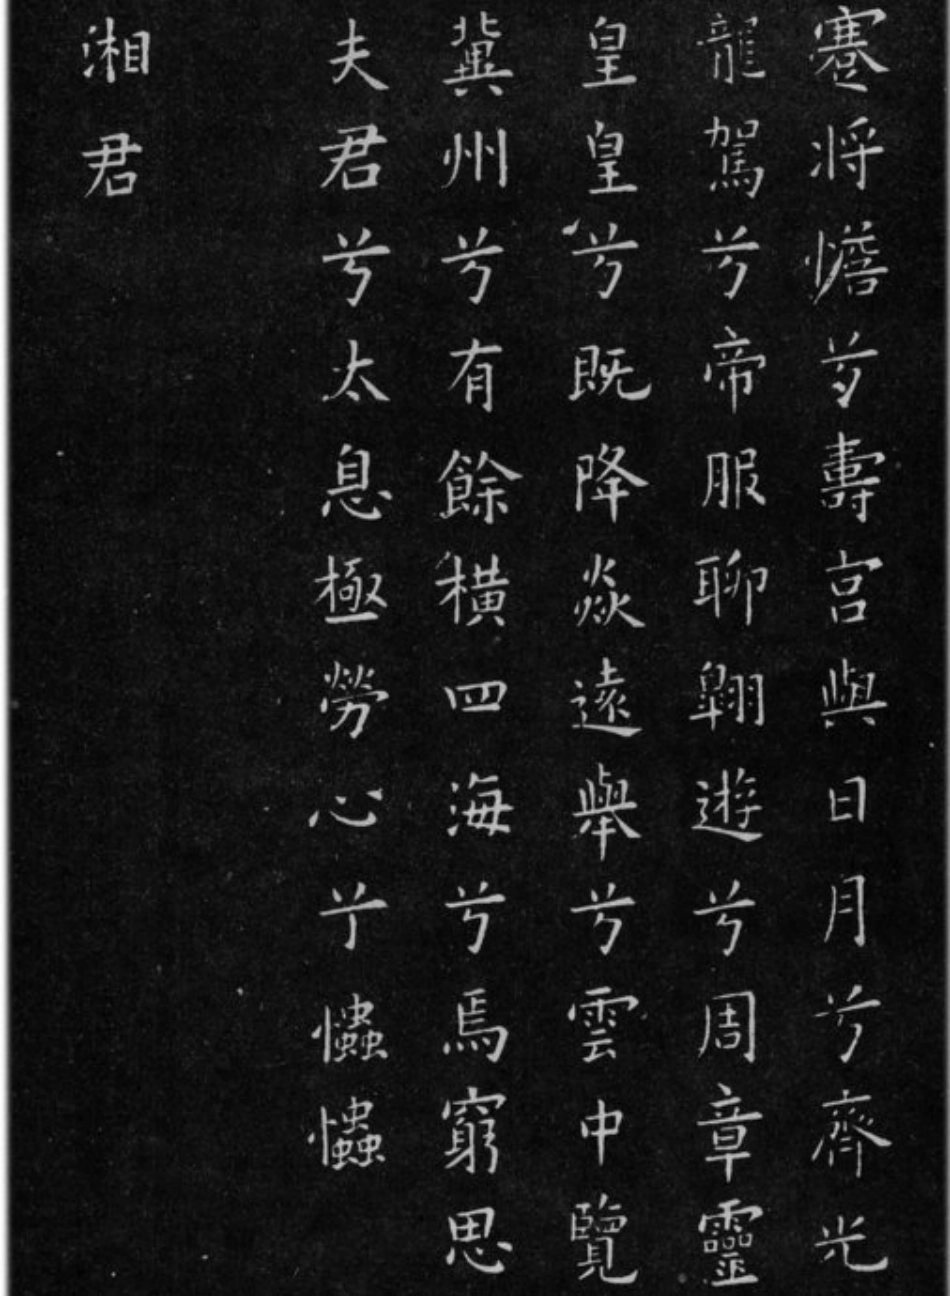 蹇将憺兮壽宫與日月兮齊光
龍駕兮帝服聊翶遊兮周章靈
皇皇兮既降焱遠舉兮雲中覽
冀州兮有餘横四海兮焉窮思
夫君兮太息極勞心兮㦀㦀
湘君